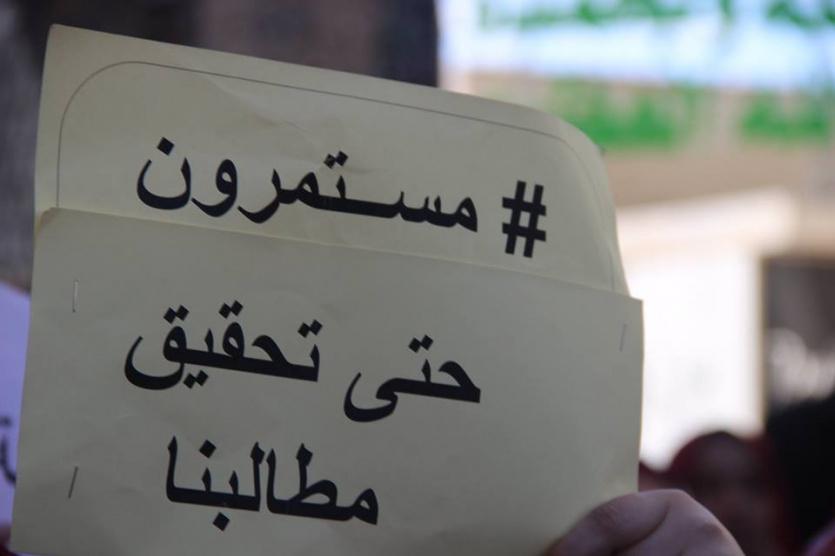 # مستمرون
حتى تحقيق
مطالبنا